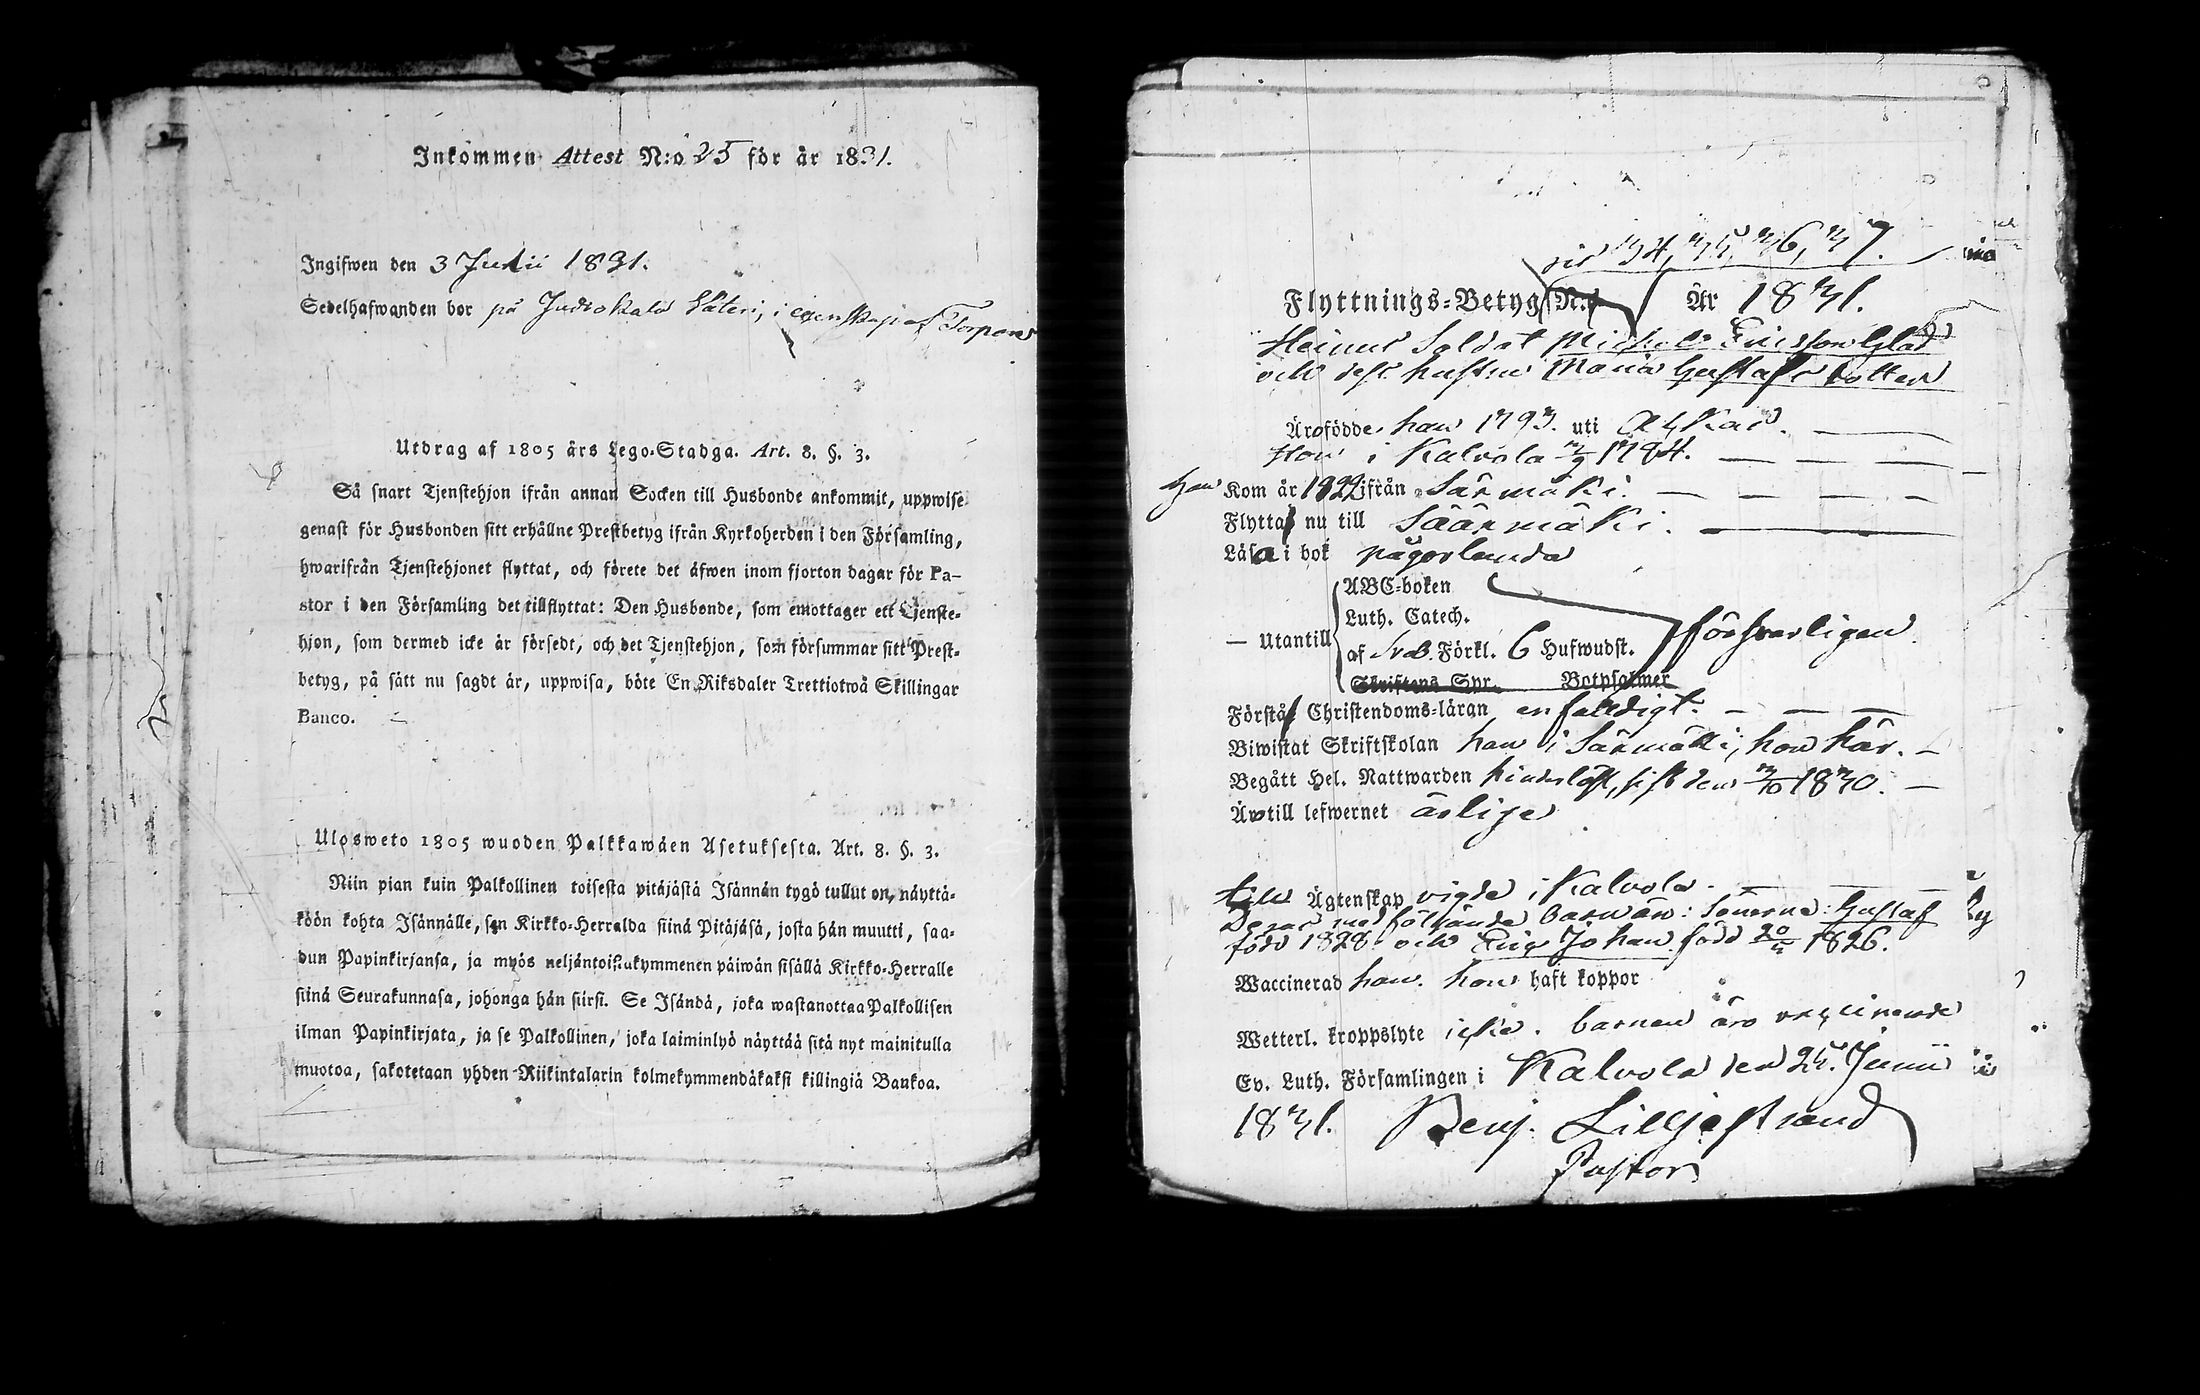 Inkommen Attest N:o 25 för år 1831.
Ingifwen den 3 Julii 1831.
Sedelhafwanden bor på Judikkala Säteri, i egenskap af Torpare
Utdrag af 1805 års Lego-Stadga. Art. 8. §. 3.
Så snart Tjenstehjon ifrån annan Socken till Husbonde ankommit, uppwise
genast för Husbonden sitt erhållne Prestbetyg ifrån Kyrkoherden i den Församling,
hwarifrån Tjenstehjonet flyttat, och förete det äfwen inom fjorton dagar för Pa-
stor i den Församling det tillflyttat: Den Husbonde, som emottager ett Tjenste-
hjon, som dermed icke är försedt, och det Tjenstehjon, som försummar sitt Prest-
betyg, på sätt nu sagdt är, uppwisa, böte En Riksdaler Trettiotwå Skillingar
Banco.
Ulosweto 1805 wuoden Palkkawäen Asetuksesta. Art. 8. §. 3.
Niin pian kuin Palkollinen toisesta pitäjästä Isännän tygö tullut on, näyttä-
köön kohta Isännälle, sen Kirkko-Herralda siinä Pitäjäsä, josta hän muutti, saa-
dun Papinkirjansa, ja myös neljäntoistakymmenen päiwän sisällä Kirkko-Herralle
siinä Seurakunnasa, johonga hän siirsi. Se Isändä, joka wastanottaa Palkollisen
ilman Papinkirjata, ja se Palkollinen, joka laiminlyö näyttää sitä nyt mainitulla
muotoa, sakotetaan yhden Riikintalarin kolmekymmendäkaksi killingiä Bankoa.
34, 35, 36, 37.
Flyttnings-Betyg N:o År 1831.
Soldat Michel Ericsson Glad
och dess hustru Maria Gustafsdotter
Äro födde, han 1793. uti Akkas.
Hon i Kalvola 3/9 1784.
Han Kom år 1822 ifrån Särmäki.
Flytta nu till Säärmäki.
Läsa i bok någorlunda
ABC-boken
Luth. Catech.
– Utantill
af Sveb. Förkl. 6 Hufwudst.
försvarligen
Skriftens Spr. Botpsalmer
Förstå Christendoms-läran enfaldigt.
Biwistat Skriftskolan han i Särmäki, hon här.
Begått Hel. Nattwarden hinderlöst, sist den 3/10 1830.
Äro till lefwernet ärlige
till Ägtenskap vigde i Kalvola.
Deras medföljande barn äro: Sönerne: Gustaf
född 1828. och Eric Johan född 1826.
Waccinerad han. hon haft koppor
Wetterl. kroppslyte icke. barnen äro vaccinerade
Ev. Luth. Församlingen i Kalvola den 25. Junii
1831. Benj. Lilljestrand
Pastor